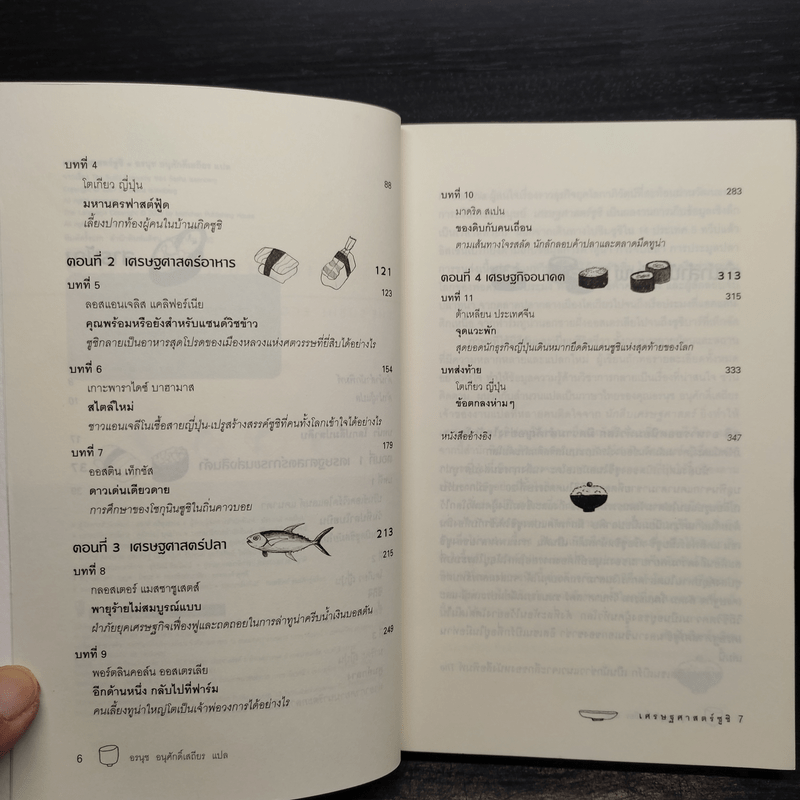 บทที่ 4
โตเกียว ญี่ปุ่น 88
มหานครฟาสต์ฟู้ด
เลี้ยงปากท้องผู้คนในบ้านเกิดซูชิ
ตอนที่ 2 เศรษฐศาสตร์อาหาร 121
บทที่ 5 123
ลอสแอนเจลิส แคลิฟอร์เนีย
คุณพร้อมหรือยังสำหรับแซนด์วิชข้าว
ซูชิกลายเป็นอาหารสุดโปรดของเมืองหลวงแห่งศตวรรษที่ยี่สิบได้อย่างไร
บทที่ 6 154
เกาะพาราไดซ์ บาฮามาส
สไตล์ใหม่
ชาวแอนเจลีโนเชื้อสายญี่ปุ่น-เปรูสร้างสรรค์ซูชิที่คนทั้งโลกเข้าใจได้อย่างไร
บทที่ 7 179
ออสติน เท็กซัส
ดาวเด่นเดียวดาย
การศึกษาของโชกุนินซูชิในถิ่นคาวบอย
ตอนที่ 3 เศรษฐศาสตร์ปลา 213
บทที่ 8 215
กลอสเตอร์ แมสซาชูเสตส์
พายุร้ายไม่สมบูรณ์แบบ
ฝ่าภัยยุคเศรษฐกิจเฟื่องฟูและถดถอยในการล่าทูน่าครีบน้ำเงินบอสตัน
บทที่ 9 249
พอร์ตลินคอล์น ออสเตรเลีย
อีกด้านหนึ่ง กลับไปที่ฟาร์ม
คนเลี้ยงทูน่าใหญ่โตเป็นเจ้าพ่อวงการได้อย่างไร
6 อรนุช อนุศักดิ์เสถียร แปล
บทที่ 10 283
มาดริด สเปน
ของดิบกับคนเถื่อน
ตามเส้นทางโจรสลัด นักลักลอบค้าปลาและตลาดมืดทูน่า
ตอนที่ 4 เศรษฐกิจอนาคต 313
บทที่ 11 315
ต้าเหลียน ประเทศจีน
จุดแวะพัก
สุดยอดนักธุรกิจญี่ปุ่นเดินหมากยึดดินแดนซูชิแห่งสุดท้ายของโลก
บทส่งท้าย 333
โตเกียว ญี่ปุ่น
ข้อตกลงห่ามๆ
หนังสืออ้างอิง 347
เศรษฐศาสตร์ซูชิ 7